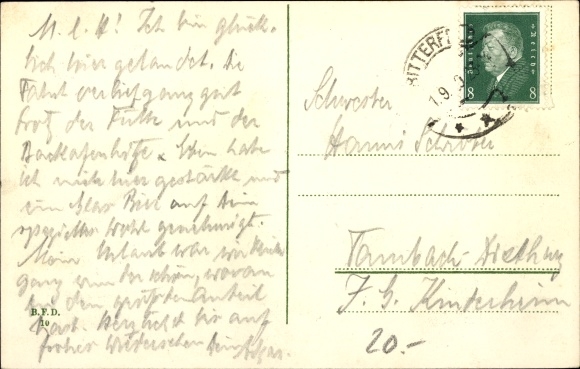 M. l. H! Ich bin glück-
lich hier gelandet. Die
Fahrt verlief ganz gut
trotz der Fülle und der
Backofenhitze. Eben habe
ich mich hier gestärkt und
ein Glas Bier auf Dein
spezielles Wohl genehmigt.
Mein Urlaub war
ganz wunderschön, woran
Du den größten Anteil
hast. Herzlichst bis auf
frohes Wiedersehen Dein
B.F.D.
10
BITTERF
1.9.
Deutsches Reich
8 8
Schwester
Hanni Schröter
Tambach-Dietharz
J. G. Kinderheim
20.-